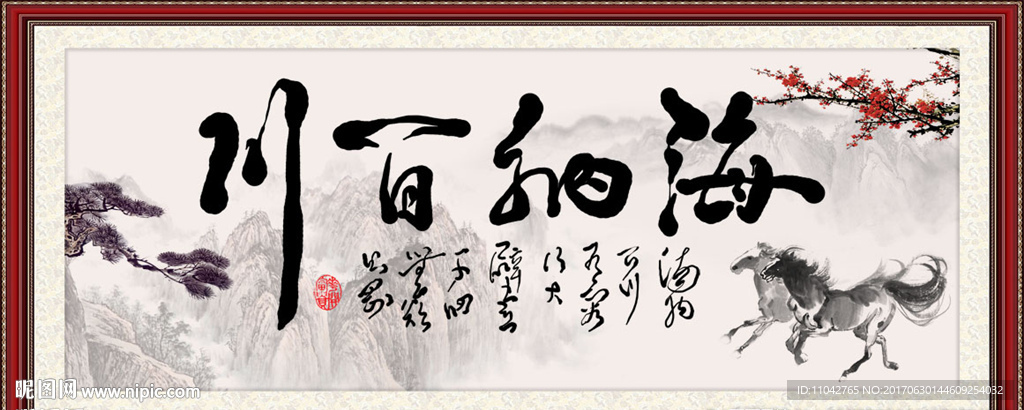 海纳百川
海纳
百川
有容
乃大
壁立
千仞
无欲
则刚
昵图网 www.nipic.com
ID:11042765 NO:20170630144609254032